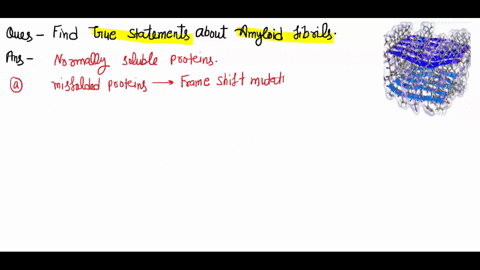 Ques - Find True statements about Amyloid fibrils.
Ans - Normally soluble proteins.
ⓐ misfolded proteins → Frame shift mutati